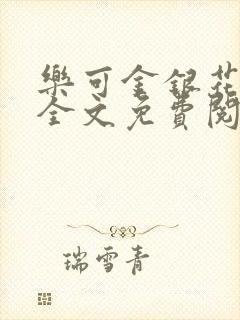 樂可金銀花
全文免費閱
瑞雪青